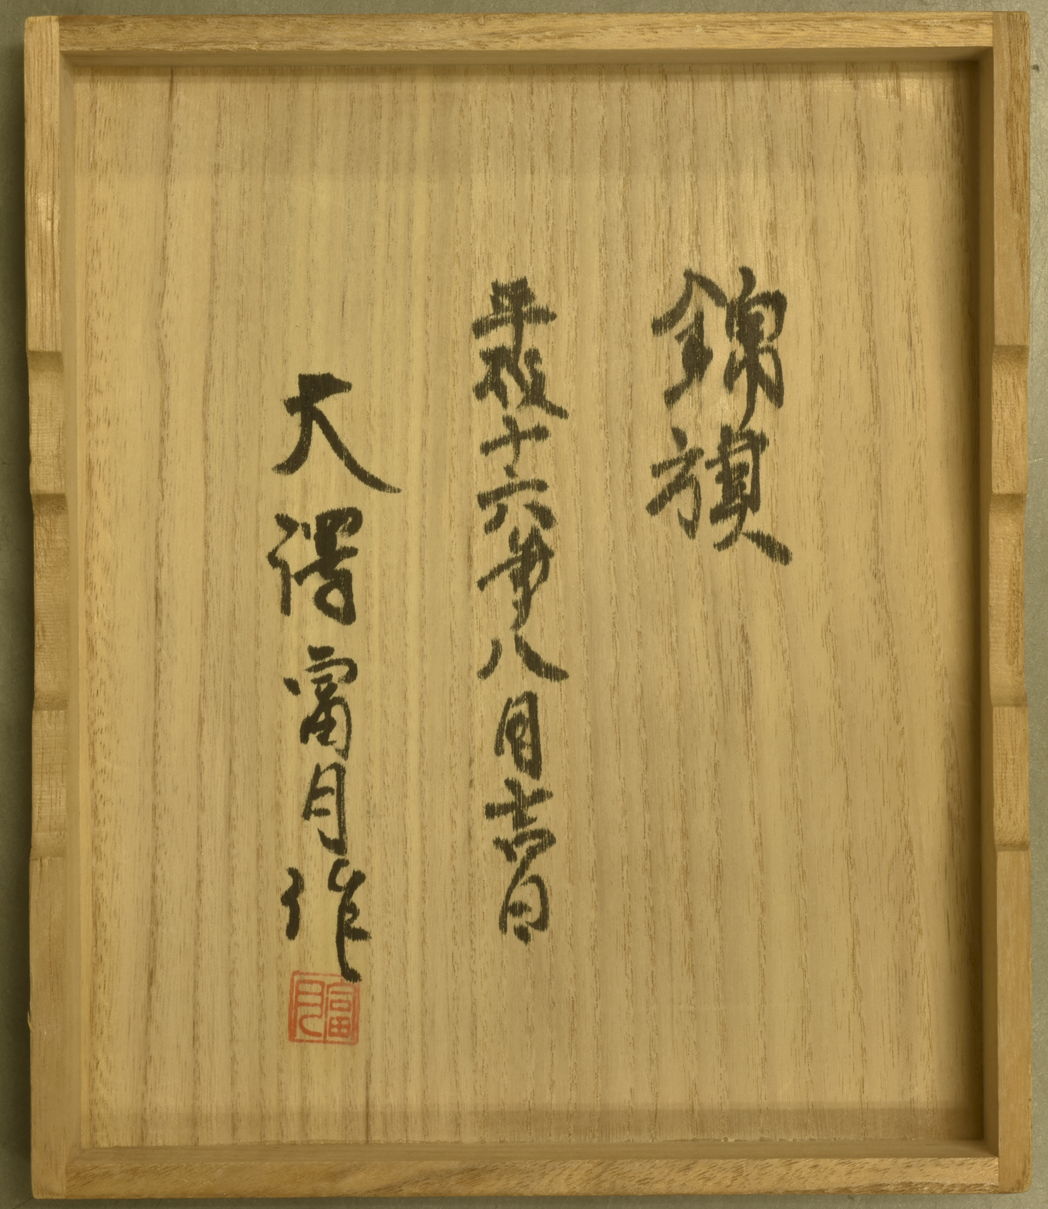 錦旗
平成十六年八月吉日
大澤富月作
富月